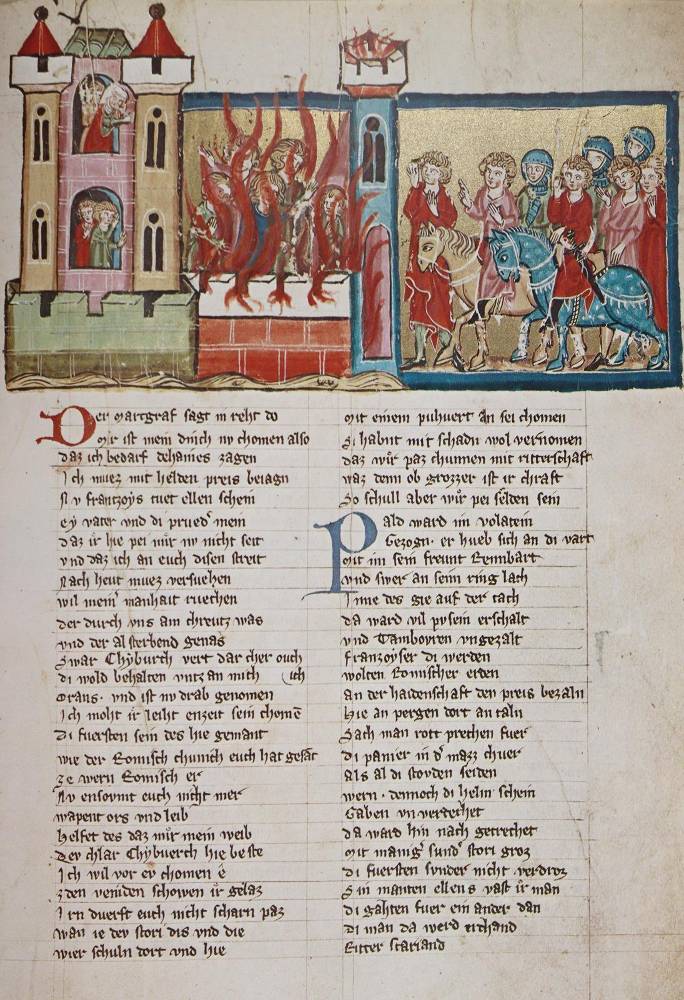 Der margraf sagt in reht do
Mir ist mein dinch nv chomen also
daz ich bedarf dehaines zagen
Ich muez mit helden preis beiagn
Nv frantzoys tuet ellen schein
ey vater vnd di prueder mein
daz ir hie pei mir nv nicht seit
vnd daz ich an euch disen streit
Nach heut muez versuehen
wil meiner manhait ruechen
der durch vns am chreutz was
vnd der al sterbend genas
Swar Chyburch vert dar cher ouch
di wold behalten vntz an mich ich
Orans. vnd ist nv drab genomen
Ich moht ir leiht enzeit sein chomen
Di fuersten sein des hie gemant
wie der Romisch chunich euch hat gesant
ze wern Romisch er
Nv ensovmt euch nicht mer
wapent ors vnd leib
helfet des daz mir mein weib
Dev chlar Chyburch hie beste
Ich wil vor ev chomen e
zden veinden schowen ir gelaz
Irn duerft euch nicht scharn paz
wan ie dev stori dis vnd die
wier schuln dort vnd hie
Mit einem puhuert an sei chomen
Si habnt mit schadn wol vernomen
daz wir paz chunnen mit ritterschaft
waz denn ob grozzer ist ir chraft
So schull aber wir pei selden sein
Pald ward im volatein
Gezogn. er hueb sich an di vart
Mit im sein freunt Rennbart
vnd swer an seim ring lach
Inne des gie auf der tach
da ward vil pusein erschalt
vnd Tambovren vngezalt
Franzoyser di werden
wolten Romischer erden
an der haidenschaft den preis bezaln
Hie an pergen dort an taln
Sach man rott prechen fuer
di panier in der mazz chuer
als al di stovden seiden
wern. dennoch di helm schein
Gaben vnverdechet
da ward hin nach getrechet
Mit maniger sunder stori groz
di fuersten sunder nicht verdroz
Sin manten ellens vast ir man
di gahten fuer ein ander dan
di man da werd erchand
Ritter sariand